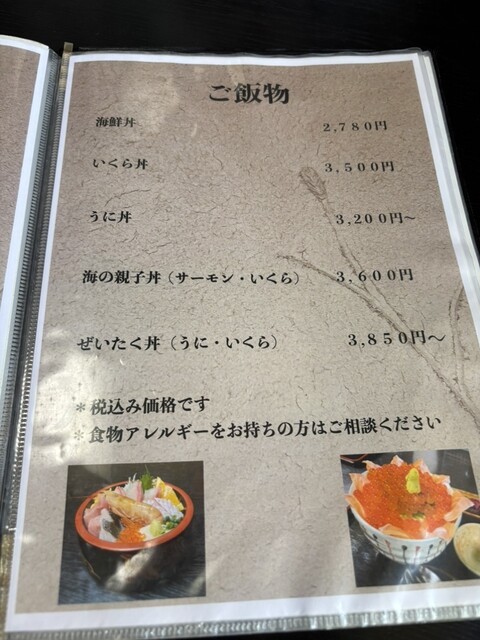 ご飯物
海鮮丼 2,780円
いくら丼 3,500円
うに丼 3,200円～
海の親子丼（サーモン・いくら） 3,600円
ぜいたく丼（うに・いくら） 3,850円～
＊税込み価格です
＊食物アレルギーをお持ちの方はご相談ください